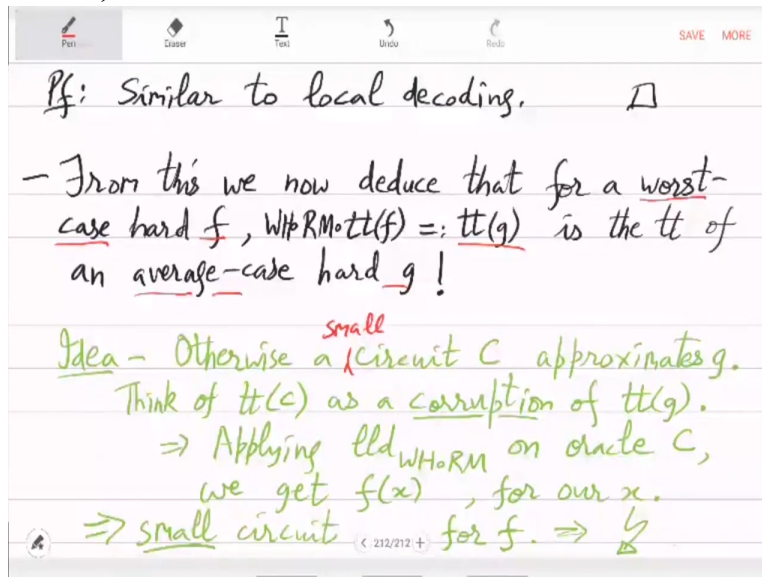 Pen Eraser Text Undo Redo SAVE MORE
Pf: Similar to local decoding. □
- From this we now deduce that for a worst-
case hard f, WH∘RM∘tt(f) =: tt(g) is the tt of
an average-case hard g !
small
Idea - Otherwise a circuit C approximates g.
Think of tt(c) as a corruption of tt(g).
⇒ Applying lld WH∘RM on oracle C,
we get f(x) , for our x.
⇒ small circuit for f. ⇒ ↯
< 212/212 +